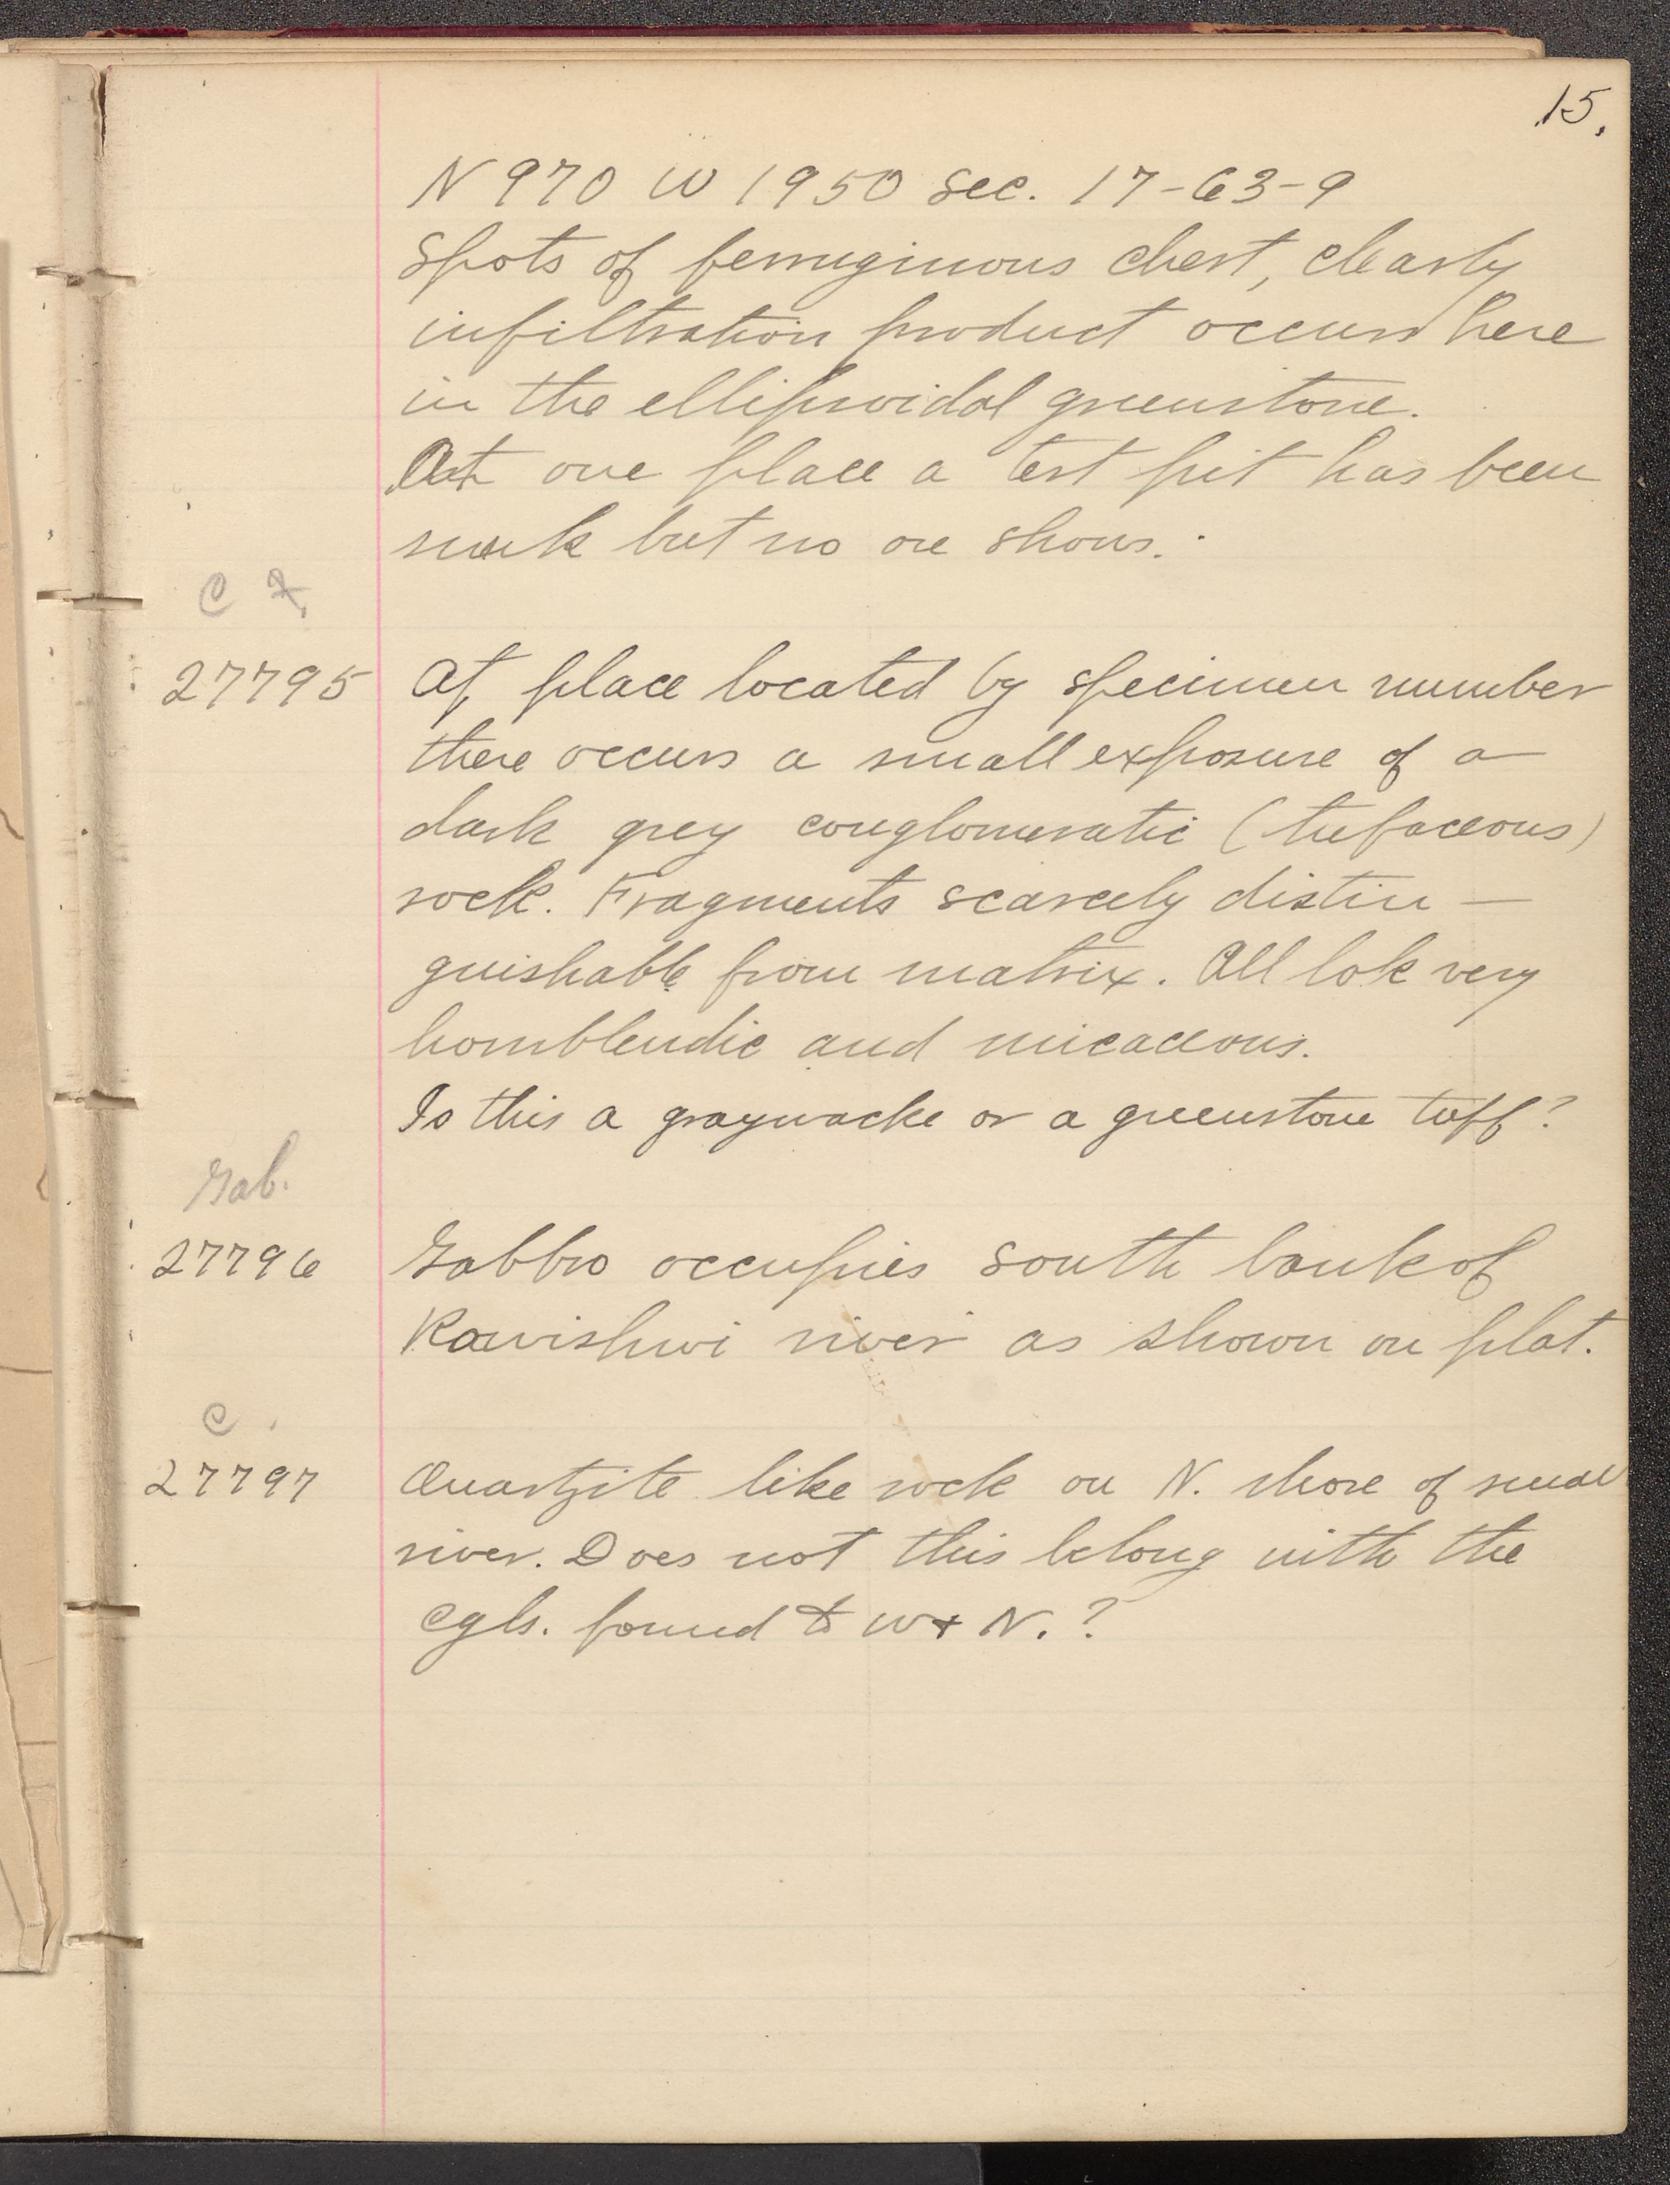 15.
N 970 W 1950 Sec. 17-63-9
Spots of ferruginous chert, clearly
infiltration product occurs here
in the ellipsoidal greenstone.
At one place a test pit has been
sunk but no ore shows.
C
27795 At place located by specimen number
there occurs a small exposure of a
dark grey conglomeratic (tufaceous)
rock. Fragments scarcely distin-
guishable from matrix. All lok very
hornblendic and micaceous.
Is this a graywacke or a greenstone tuff?
Gab.
27796 Gabbro occupies south bank of
Kawishwi river as shown on plat.
C.
27797 Quartzite like rock on N. shore of small
river. Does not this belong with the
cgls. found to W + N.?